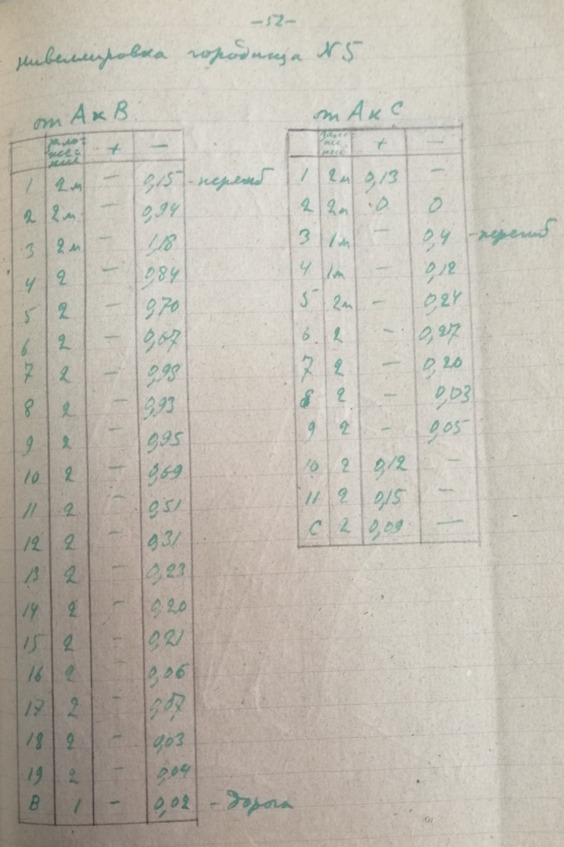 -52-
Нивеллировка городища N5
от А к В
зало-
же-
ние + -
1 2м - 0,15 - перегиб
2 2м - 0,94
3 2м - 1,18
4 2 - 0,84
5 2 - 0,70
6 2 - 0,67
7 2 - 0,93
8 2 - 0,93
9 2 - 0,95
10 2 - 0,69
11 2 - 0,51
12 2 - 0,31
13 2 - 0,23
14 2 - 0,20
15 2 - 0,21
16 2 - 0,06
17 2 - 0,07
18 2 - 0,03
19 2 - 0,04
В 1 - 0,02 - дорога
от А к С
зало-
же-
ние + -
1 2м 0,13 -
2 2м 0 0
3 1м - 0,4 - перегиб
4 1м - 0,12
5 2м - 0,24
6 2 - 0,27
7 2 - 0,20
8 2 - 0,03
9 2 - 0,05
10 2 0,12 -
11 2 0,15 -
С 2 0,09 -